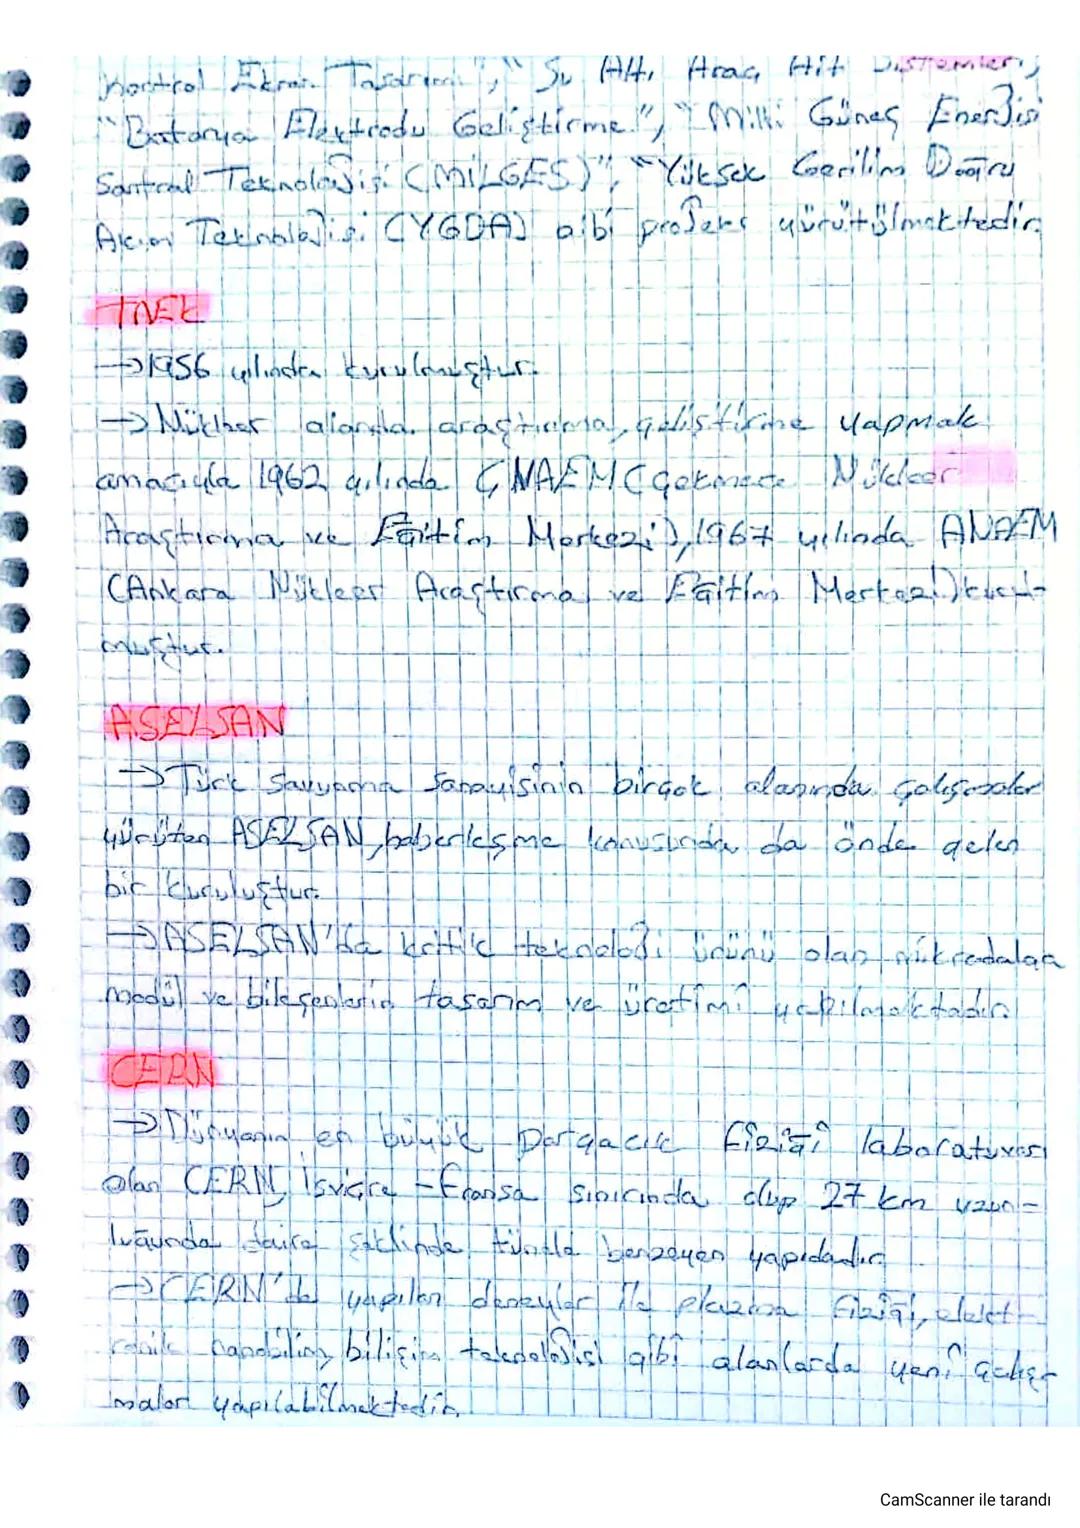 Kontrol Ekran Tasarımı", "Su Altı Araç Hit Sistemleri,
"Batarya Elektrodu Geliştirme", "Milli Güneş Enerjisi
Santral Teknolojisi (MİLGES)", "Yüksek Gerilim Doğru
Akım Teknolojisi (YGDA) gibi projeler yürütülmektedir.
TAEK
→ 1956 yılında kurulmuştur.
→ Nükleer alanda araştırma, geliştirme yapmak
amacıyla 1962 yılında ÇNAEM (Çekmece Nükleer
Araştırma ve Eğitim Merkezi), 1967 yılında ANAEM
(Ankara Nükleer Araştırma ve Eğitim Merkezi) kurul-
muştur.
ASELSAN
→ Türk Savunma Sanayisinin birçok alanında çalışmalar
yürüten ASELSAN, haberleşme konusunda da önde gelen
bir kuruluştur.
→ ASELSAN'da kritik teknoloji ürünü olan mikrodalga
modül ve bileşenlerin tasarım ve üretimi yapılmaktadır.
CERN
→ Dünyanın en büyük parçacık fiziği laboratuvarı
olan CERN, İsviçre - Fransa sınırında olup 27 km uzun-
luğunda daire şeklinde tünele benzeyen yapıdadır.
→ CERN'de yapılan deneyler ile plazma fiziği, elekt-
ronik nanobilim, bilişim teknolojisi gibi alanlarda yeni çalış-
malar yapılabilmektedir.
CamScanner ile tarandı